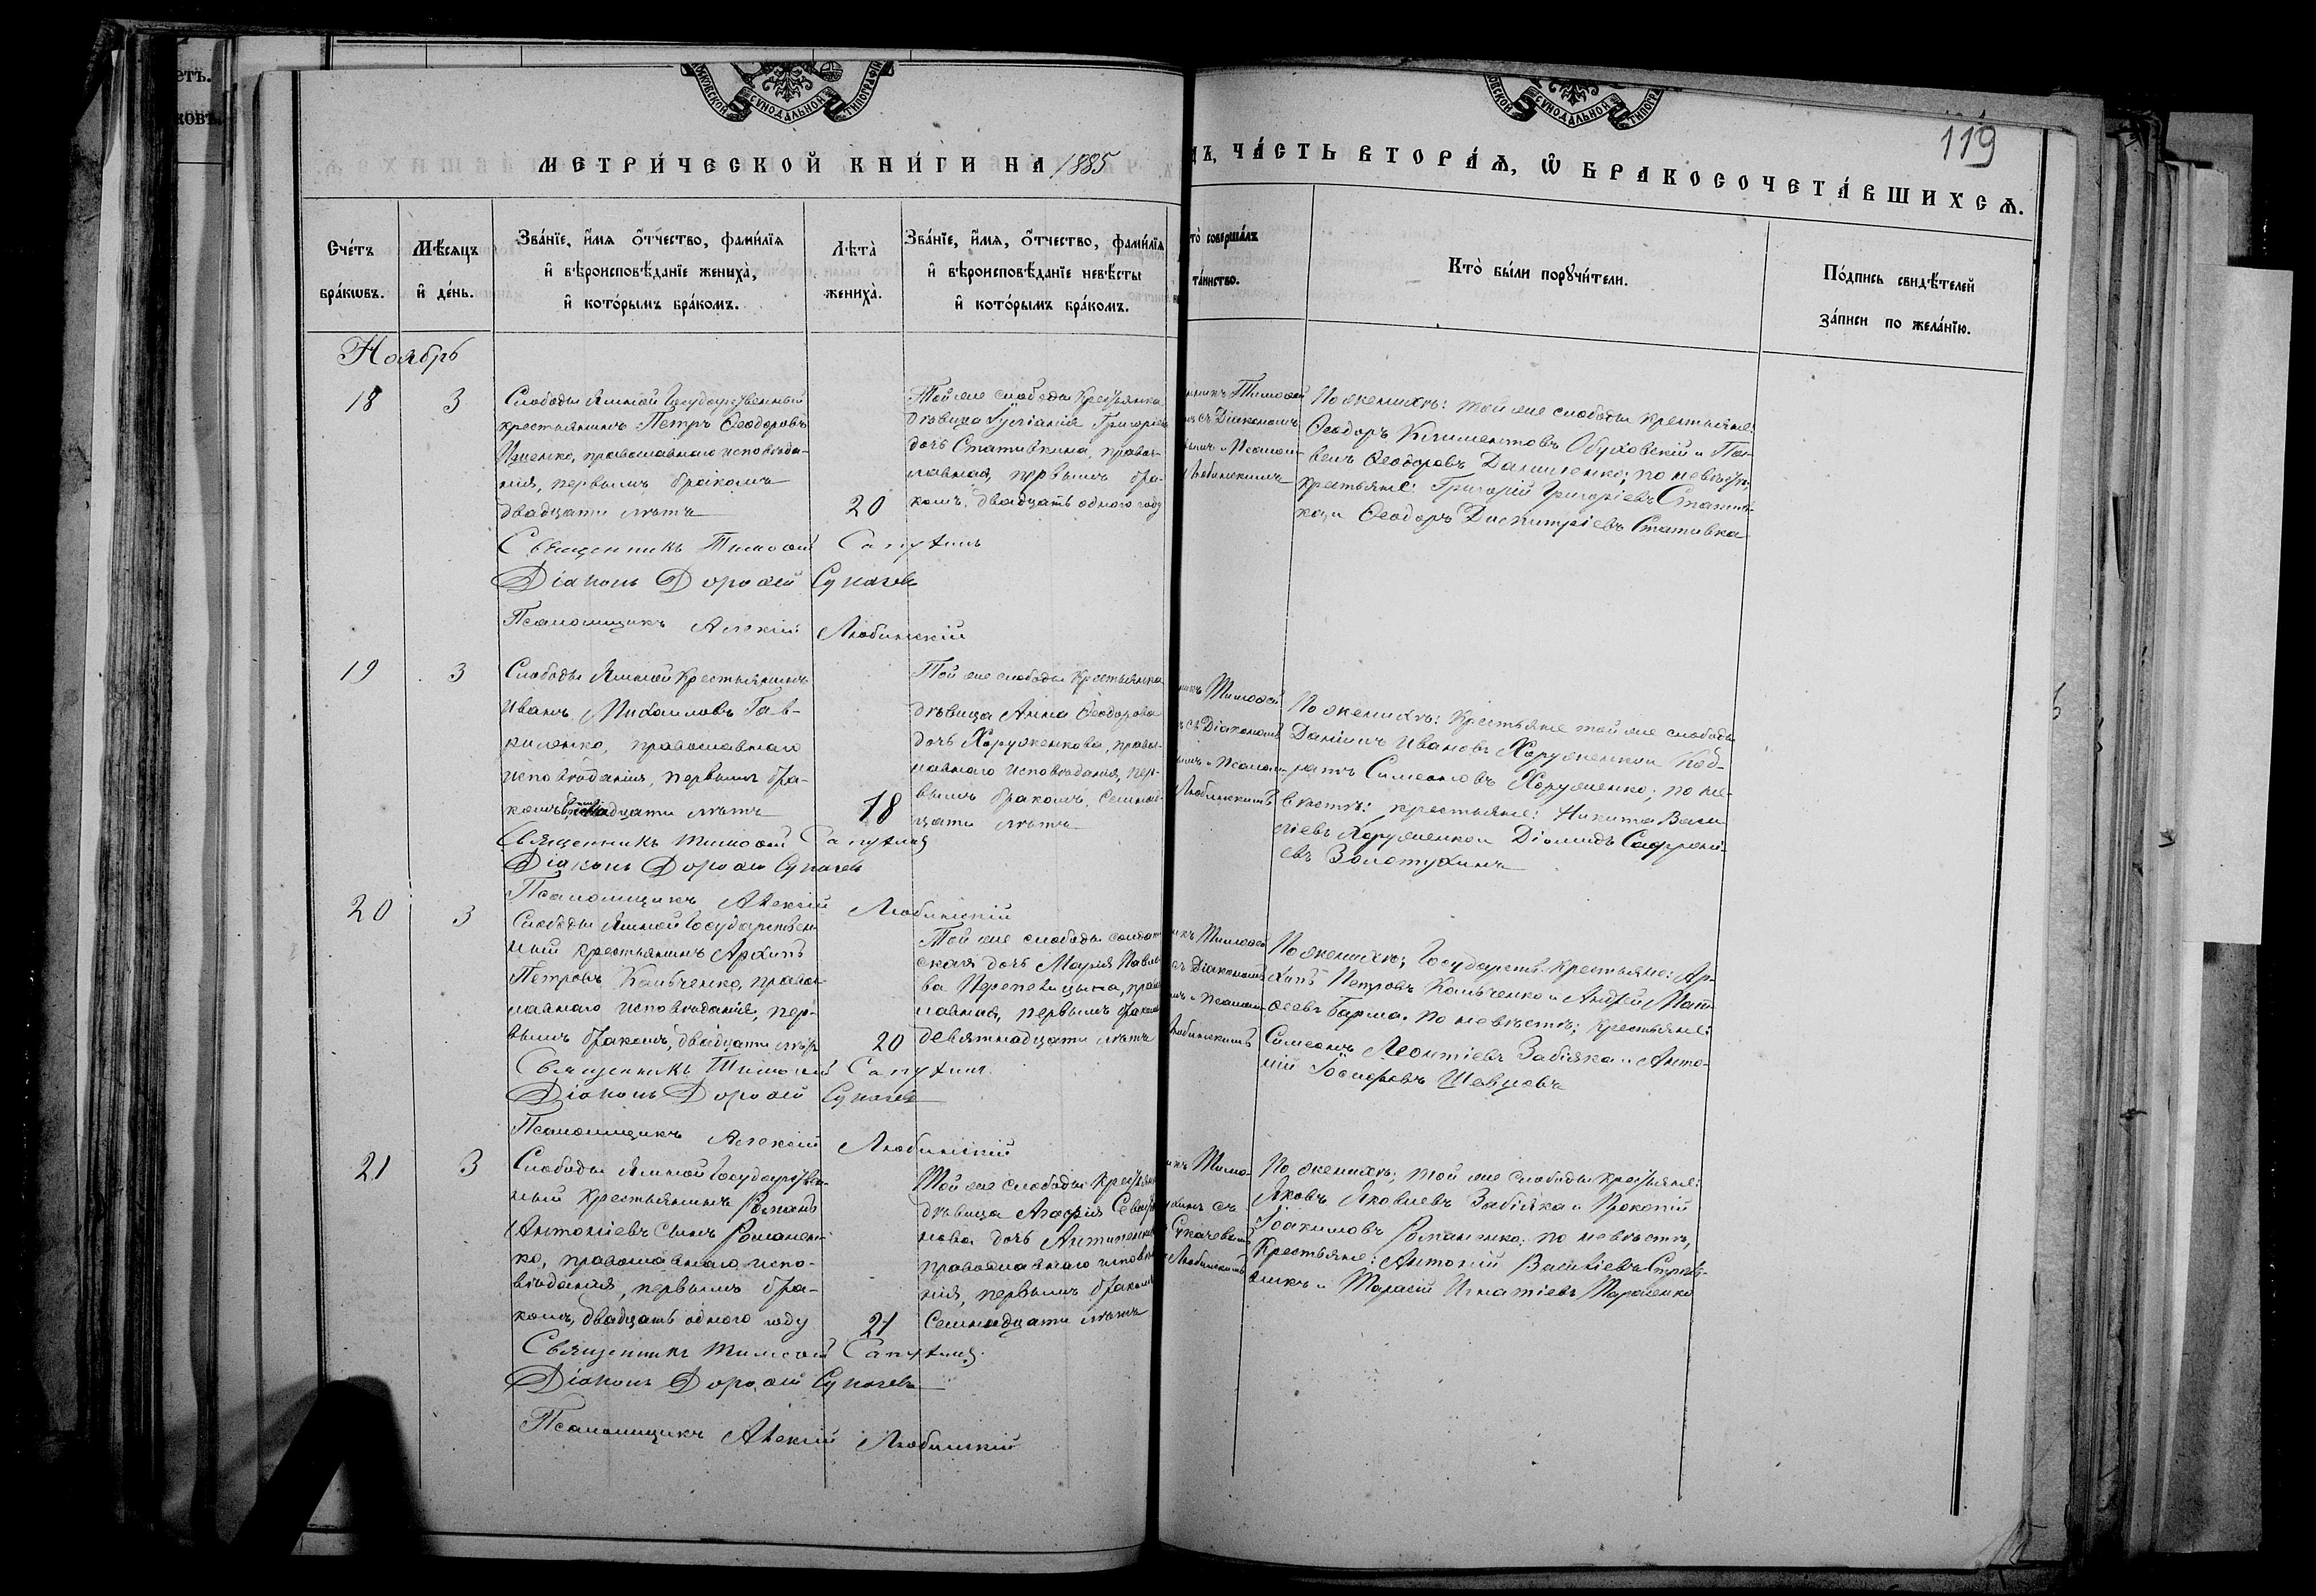 119
МЕТРИ́ЧЕСКОЙ КНИ́ГИ НА 1885
ДЪ, ЧА́СТЬ ВТОРА́Ѧ, Ѡ҆ БРАКОСОЧЕТА́ВШИХСѦ.
Сче́тъ
бра́кѡвъ.
Мѣ́сѧцъ
и҆ де́нь.
Зва́нїе, и҆́мѧ ѻ҆́тчество, фами́лїѧ
и҆ вѣроисповѣ́данїе жениха̀,
и҆ кото́рымъ бра́комъ.
Лѣта̀
жениха̀.
Зва́нїе, и҆́мѧ, ѻ҆́тчество, фами́лїѧ
и҆ вѣроисповѣ́данїе невѣ́сты
и҆ кото́рымъ бра́комъ.
то̀ соверша́лъ
та́инство.
Кто̀ бы́ли порꙋчи́тели.
По́дпись свидѣ́телей
за́писи по жела́нїю.
Ноябрь
18
3
Слободы Ямной Государственный
крестьянинъ Петръ Ѳеодоровъ
православнаго исповѣда-
нія, первымъ бракомъ
двадцати лѣтъ
20
Той же слободы крестьянка
дѣвица Григоріева
дочь Стативкина, правос-
лавная, первымъ бра-
комъ, двадцать одного году
никъ Тимоѳей
съ Діакономъ
Псалом-
Любинскимъ
По женихѣ: той же слободы крестьяне:
Ѳеодоръ Климентовъ Обуховскій и Па-
велъ Ѳеодоровъ Даниленко; по невѣстѣ:
крестьяне: Григорій Григоріевъ Статив-
ка, и Ѳеодоръ Димитріевъ Стативка
Священникъ Тимоѳей Сапухинъ
Діаконъ Дороѳей Сукачевъ
Псаломщикъ Алексій Любинскій
19
3
Слободы Ямной крестьянинъ
Иванъ Михаиловъ Гав-
риленко, православнаго
исповѣданія, первымъ бра-
комъ, лѣтъ
18
Той же слободы крестьянка
дѣвица Анна Ѳеодорова
дочь Харуженкова, правос-
лавнаго исповѣданія, пер-
вымъ бракомъ, семнад-
цати лѣтъ
никъ Тимоѳей
съ Діакономъ
Псалом-
Любинскимъ
По женихѣ: крестьяне той же слободы
Даніилъ Ивановъ Харуженко и Код-
ратъ Симеоновъ Харуженко; по не-
вѣстѣ: крестьяне: Никита Васи-
ліевъ Харуженко и Діомидъ Сафроні-
евъ Золотухинъ
Священникъ Тимоѳей Сапухинъ
Діаконъ Дороѳей Сукачевъ
Псаломщикъ Алексій Любинскій
20
3
Слободы Ямной Государствен-
ный крестьянинъ Архипъ
Петровъ Кальченко, правос-
лавнаго исповѣданія, пер-
вымъ бракомъ, двадцати лѣтъ
20
Той же слободы солдат-
ская дочь Марія Павло-
ва Перепелицына, право-
лавная, первымъ бракомъ
девятнадцати лѣтъ
никъ Тимоѳей
съ Діакономъ
Псалом-
Любинскимъ
По женихѣ: Государств. крестьяне: Ар-
хипъ Петровъ Кальченко и Андрей Мат-
ѳеевъ Барма. По невѣстѣ; крестьяне:
Симеонъ Леонтіевъ Забіяка и Анто-
ній Іосифовъ Шевцовъ
Священникъ Тимоѳей Сапухинъ
Діаконъ Дороѳей Сукачевъ
Псаломщикъ Алексій Любинскій
21
3
Слободы Ямной Государствен-
ный крестьянинъ Романъ
Антоніевъ сынъ Романен-
ко, православнаго испо-
вѣданія, первымъ бра-
комъ, двадцать одного году
21
Той же слободы крестьянка
дѣвица Агафія
дочь Антипенкова
православнаго исповѣда-
нія, первымъ бракомъ
семнадцати лѣтъ
Тимо-
съ
Сукачевымъ
Любинскимъ
По женихѣ; той же слободы крестьяне:
Яковъ Яковлевъ Забіяка и Прокопій
Іоакимовъ Романенко; по невѣстѣ,
крестьяне: Антоній Василіевъ
и Тарасій Игнатіевъ Тарасенко
Священникъ Тимоѳей Сапухинъ
Діаконъ Дороѳей Сукачевъ
Псаломщикъ Алексій Любинскій